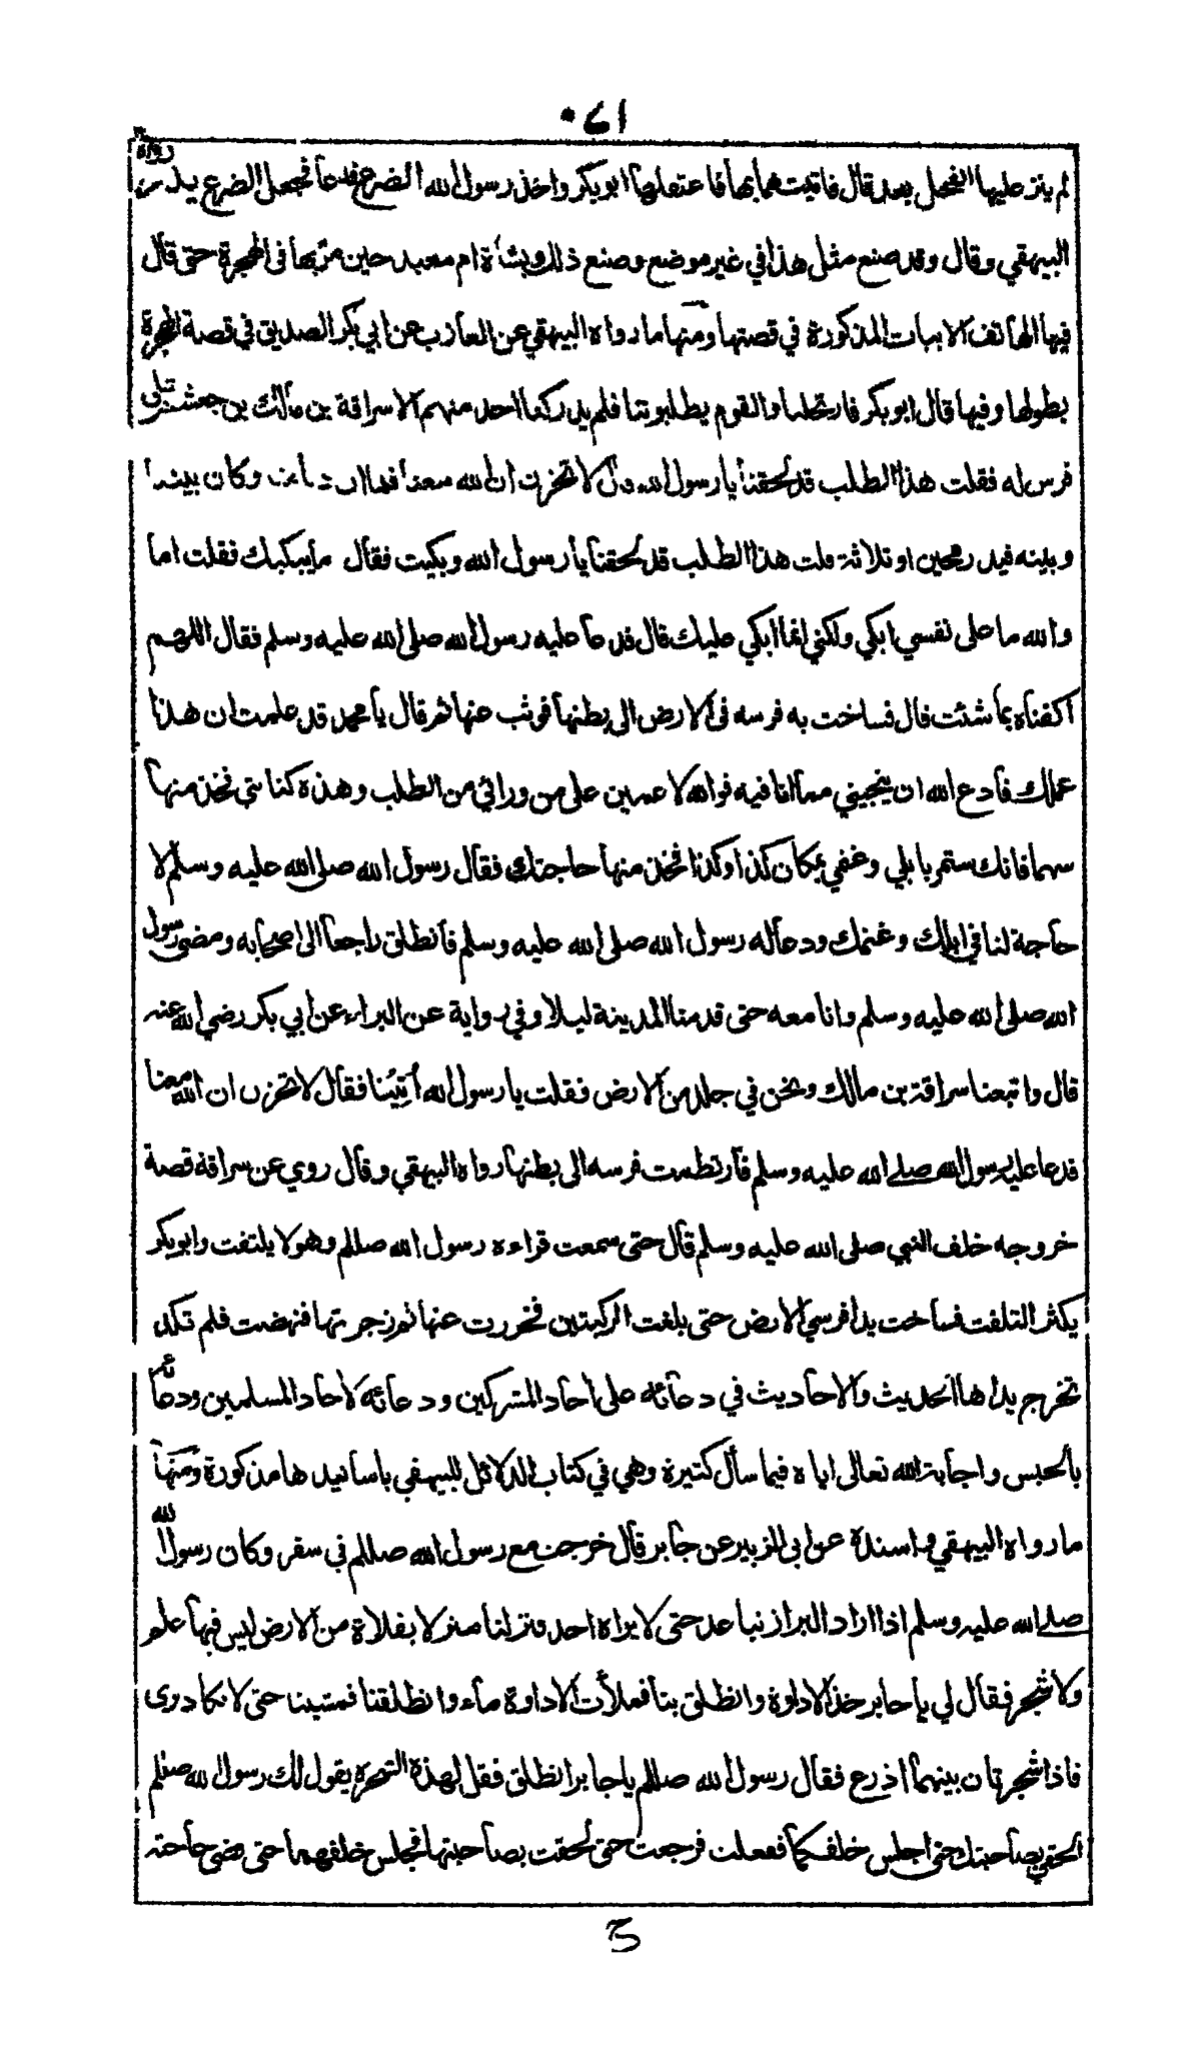 ١٤٠
لم ينز عليها الفحل بعد قال فاتيت بهما فاعتقلها ابو بكر واخذ رسول الله الضرع فدعا فجعل الضرع يدر رواه
البيهقي وقال وقد صنع مثل هذا في غير موضع وصنع ذلك بشاة ام معبد حين مر بها في الهجرة حتى قال
فيها الهاتف الابيات المذكورة في قصتها ومنها ما رواه البيهقي عن العازب عن ابي بكر الصديق في قصة الهجرة
بطولها وفيها قال ابو بكر فارتحلنا والقوم يطلبوننا فلم يدركنا احد منهم الا سراقة بن مالك بن جعشم على
فرس له فقلت هذا الطلب قد لحقنا يا رسول الله قال لا تحزن ان الله معنا فلما ان دنا منا وكان بيننا
وبينه قيد رمحين او ثلاثة قلت هذا الطلب قد لحقنا يا رسول الله وبكيت فقال ما يبكيك فقلت اما
والله ما على نفسي ابكي ولكني انما ابكي عليك قال فدعا عليه رسول الله صلى الله عليه وسلم فقال اللهم
اكفناه بما شئت قال فساخت به فرسه في الارض الى بطنها فوثب عنها ثم قال يا محمد قد علمت ان هذا
عملك فادع الله ان ينجيني مما انا فيه فوالله لاعمين على من ورائي من الطلب وهذه كنانتي فخذ منها
سهما فانك ستمر بابلي وغنمي بمكان كذا وكذا فخذ منها حاجتك فقال رسول الله صلى الله عليه وسلم لا
حاجة لنا في ابلك وغنمك ودعا له رسول الله صلى الله عليه وسلم فانطلق راجعا الى اصحابه ومضى رسول
الله صلى الله عليه وسلم وانا معه حتى قدمنا المدينة ليلا وفي رواية عن البراء عن ابي بكر رضي الله عنه
قال واتبعنا سراقة بن مالك ونحن في جلد من الارض فقلت يا رسول الله أتينا فقال لا تحزن ان الله معنا
فدعا عليه رسول الله صلى الله عليه وسلم فارتطمت فرسه الى بطنها رواه البيهقي وقال روي عن سراقة قصة
خروجه خلف النبي صلى الله عليه وسلم قال حتى سمعت قراءه رسول الله صللم وهو لا يلتفت وابو بكر
يكثر التلفت فساخت يدا فرسي الارض حتى بلغت الركبتين فخررت عنها ثم زجرتها فنهضت فلم تكد
تخرج يداها الحديث والاحاديث في دعائه على احاد المشركين ودعائه لاحاد المسلمين ودعائه
بالحبس واجابة الله تعالى اياه فيما سأل كثيرة وهي في كتاب الدلائل للبيهقي باسانيدها مذكورة ومنها
ما رواه البيهقي باسنده عن ابي الزبير عن جابر قال خرجت مع رسول الله صللم في سفر وكان رسول الله
صلى الله عليه وسلم اذا اراد البراز تباعد حتى لا يراه احد فنزلنا منزلا بفلاة من الارض ليس فيها علم
ولا شجر فقال لي يا جابر خذ الاداوة وانطلق بنا فملأت الاداوة ماء وانطلقنا فمشينا حتى لا نكاد نرى
فاذا شجرتان بينهما اذرع فقال رسول الله صللم يا جابر انطلق فقل لهذه الشجرة يقول لك رسول الله صللم
الحقي بصاحبتك حتى اجلس خلفكما ففعلت فرجعت حتى لحقت بصاحبتها فجلس خلفهما حتى قضى حاجته